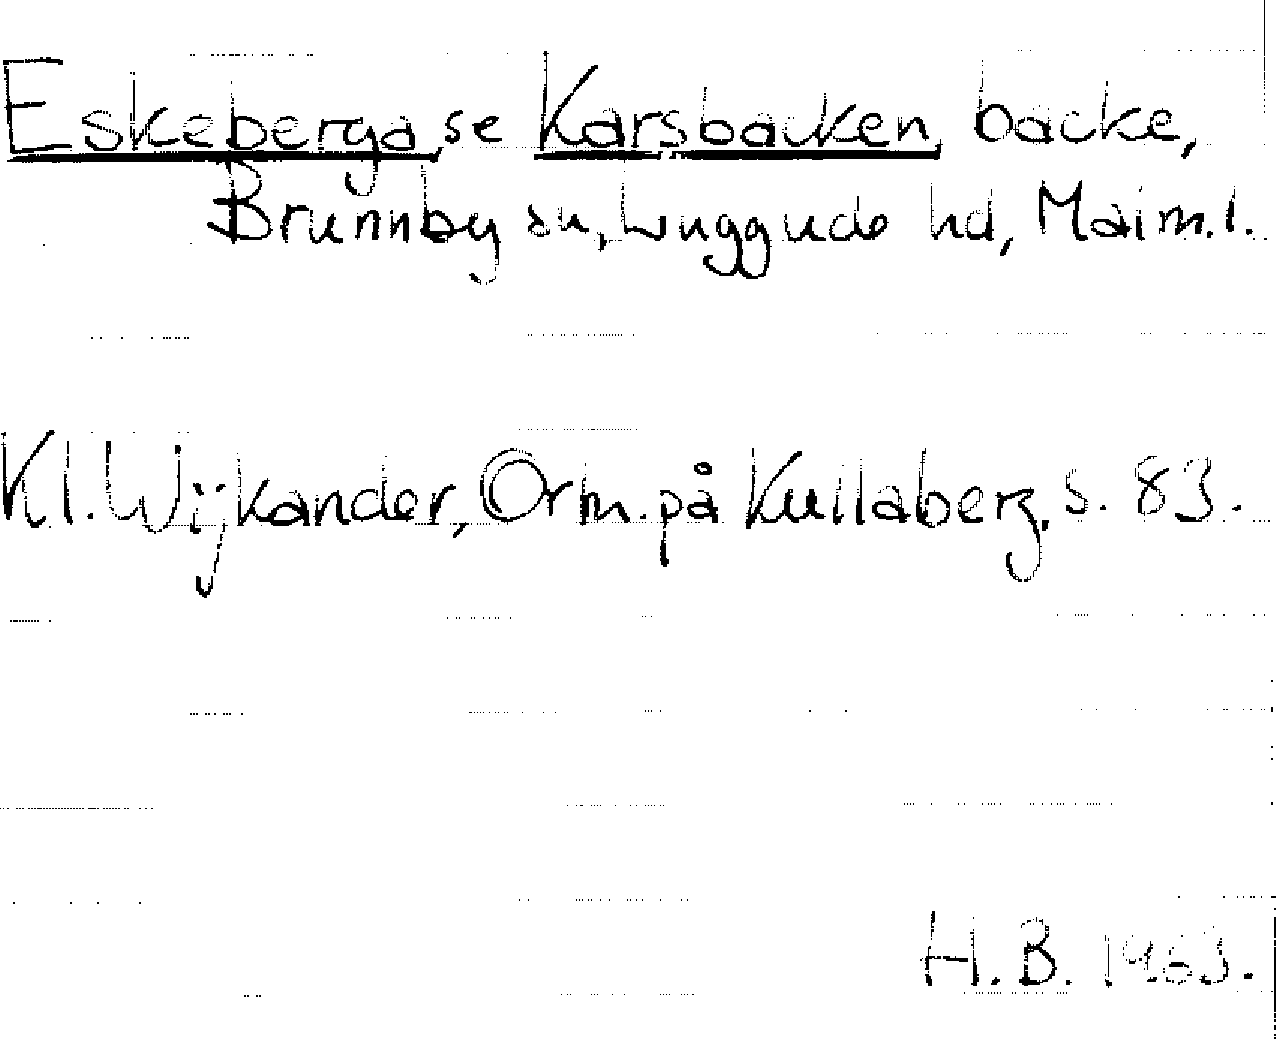 Eskeberga, se Karsbacken, backe,
Brunnby sn, Luggude hd, Malm. l.
Kl. Wijkander, Orm. på Kullaberg, s. 83.
H. B. 1963.